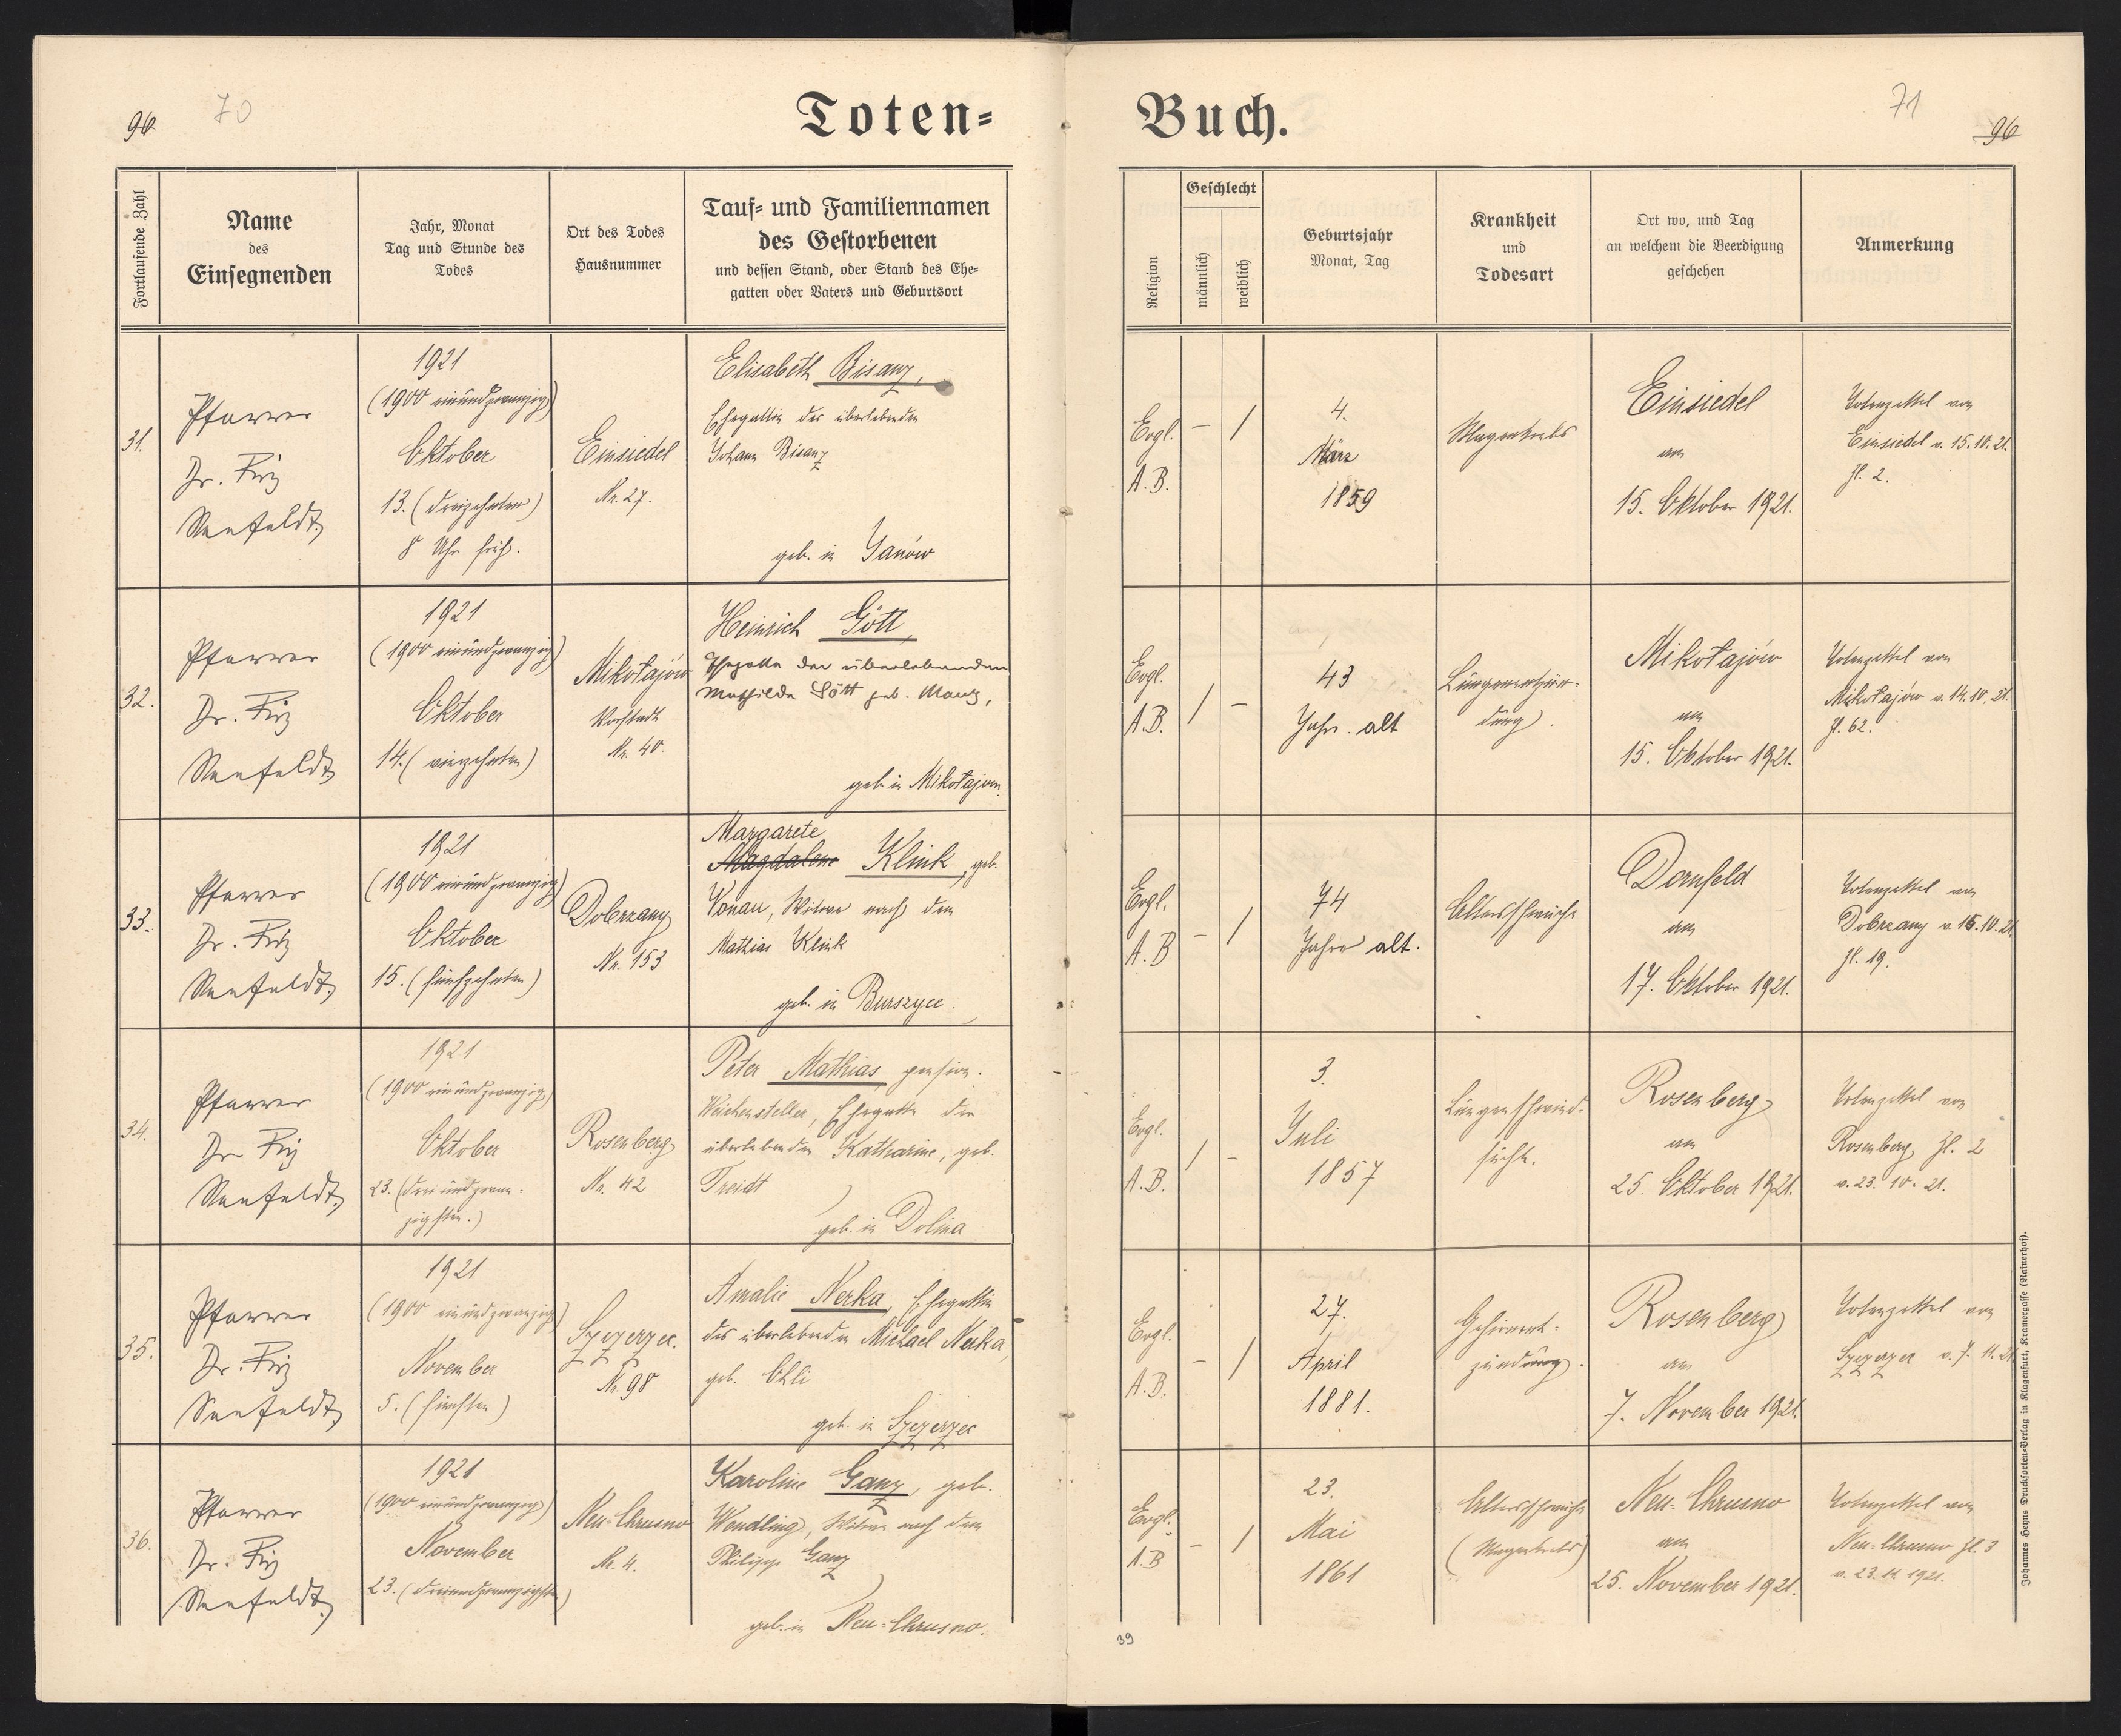 96
70
Toten=
Buch.
71
96
Fortlaufende Zahl
Name
des
Einsegnenden
Jahr, Monat
Tag und Stunde des
Todes
Ort des Todes
Hausnummer
Tauf= und Familiennamen
des Gestorbenen
und dessen Stand, oder Stand des Ehe=
gatten oder Vaters und Geburtsort
Religion
Geschlecht
männlich
weiblich
Geburtsjahr
Monat, Tag
Krankheit
und
Todesart
Ort wo, und Tag
an welchem die Beerdigung
geschehen
Anmerkung
31.
Pfarrer
Dr. Friz
Seefeldt
1921
(1900 einundzwanzig)
Oktober
13. (dreizehnten)
8 Uhr früh.
Einsiedel
Nr. 27.
Elisabeth Bisanz,
Ehegattin des überlebenden
Johann Bisanz
geb. in Janów
Evgl.
A.B.
– /
4.
März
1859
Magenkrebs
Einsiedel
am
15. Oktober 1921.
Totenzettel von
Einsiedel v. 15.10.21.
Zl. 2.
32.
Pfarrer
Dr. Friz
Seefeldt
1921
(1900 einundzwanzig)
Oktober
14. (vierzehnten)
Mikołajów
Vorstadt
Nr. 40.
Heinrich Gött,
Ehegatte der überlebenden
Mathilde Gött geb. Manz,
geb. in Mikołajow.
Evgl.
A.B.
/ –
43
Jahre alt
Lungenentzün-
dung.
Mikołajów
am
15. Oktober 1921.
Totenzettel von
Mikołajów v. 14.10.21.
Zl. 62.
33.
Pfarrer
Dr. Friz
Seefeldt
1921
(1900 einundzwanzig)
Oktober
15. (fünfzehnten)
Dobrzany
Nr. 153
Margarete
Magdalene Klink, geb.
Konau, Witwe nach dem
Mathias Klink
geb. in Burszyce.
Evgl.
A.B
– /
74
Jahre alt.
Altersschwäche
Dornfeld
am
17. Oktober 1921.
Totenzettel von
Dobrzany v. 16.10.21
Zl. 19.
34.
Pfarrer
Dr. Friz
Seefeldt
1921
(1900 einundzwanzig)
Oktober
23. (dreiundzwan-
zigsten.)
Rosenberg
Nr. 42
Peter Mathias, pension.
Weichensteller, Ehegatte der
überlebenden Katharine, geb.
Treidt
geb. in Dolina
Evgl.
A.B.
/ –
3.
Juli
1857
Lungenschwind-
sucht.
Rosenberg
am
25. Oktober 1921.
Totenzettel von
Rosenberg, Zl. 2
v. 23. 10. 21.
35.
Pfarrer
Dr. Friz
Seefeldt
1921
(1900 einundzwanzig)
November
5. (fünften)
Szczerzec.
Nr. 98
Amalie Nerka, Ehegattin
des überlebenden Michael Nerka,
geb. Ohli
geb. in Szczerzec
Evgl.
A.B.
– /
27.
April
1881.
Gehirnent-
zündung.
Rosenberg
am
7. November 1921.
Totenzettel von
Szczerzec v. 7. 11. 21
36.
Pfarrer
Dr. Friz
Seefeldt
1921
(1900 einundzwanzig)
November
23. (dreiundzwanzigsten)
Neu-Chrusno
Nr. 4.
Karoline Ganz, geb.
Wendling, Witwe nach dem
Philipp Ganz
geb. in Neu-Chrusno.
Evgl.
A.B
– /
23.
Mai
1861
Altersschwäche
(Magenkrebs)
Neu-Chrusno
am
25. November 1921.
Totenzettel von
Neu-Chrusno Zl. 3
v. 23. 11. 1921.
39
Johannes Heyns Drucksorten-Verlag in Klagenfurt, Kramergasse (Rainerhof).